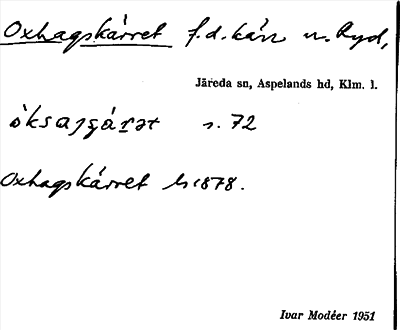 Oxhagskärret f.d. kärr n. Ryd,
Järeda sn, Aspelands hd, Klm. l.
s. 72
Oxhagskärret 1878.
Ivar Modéer 1951